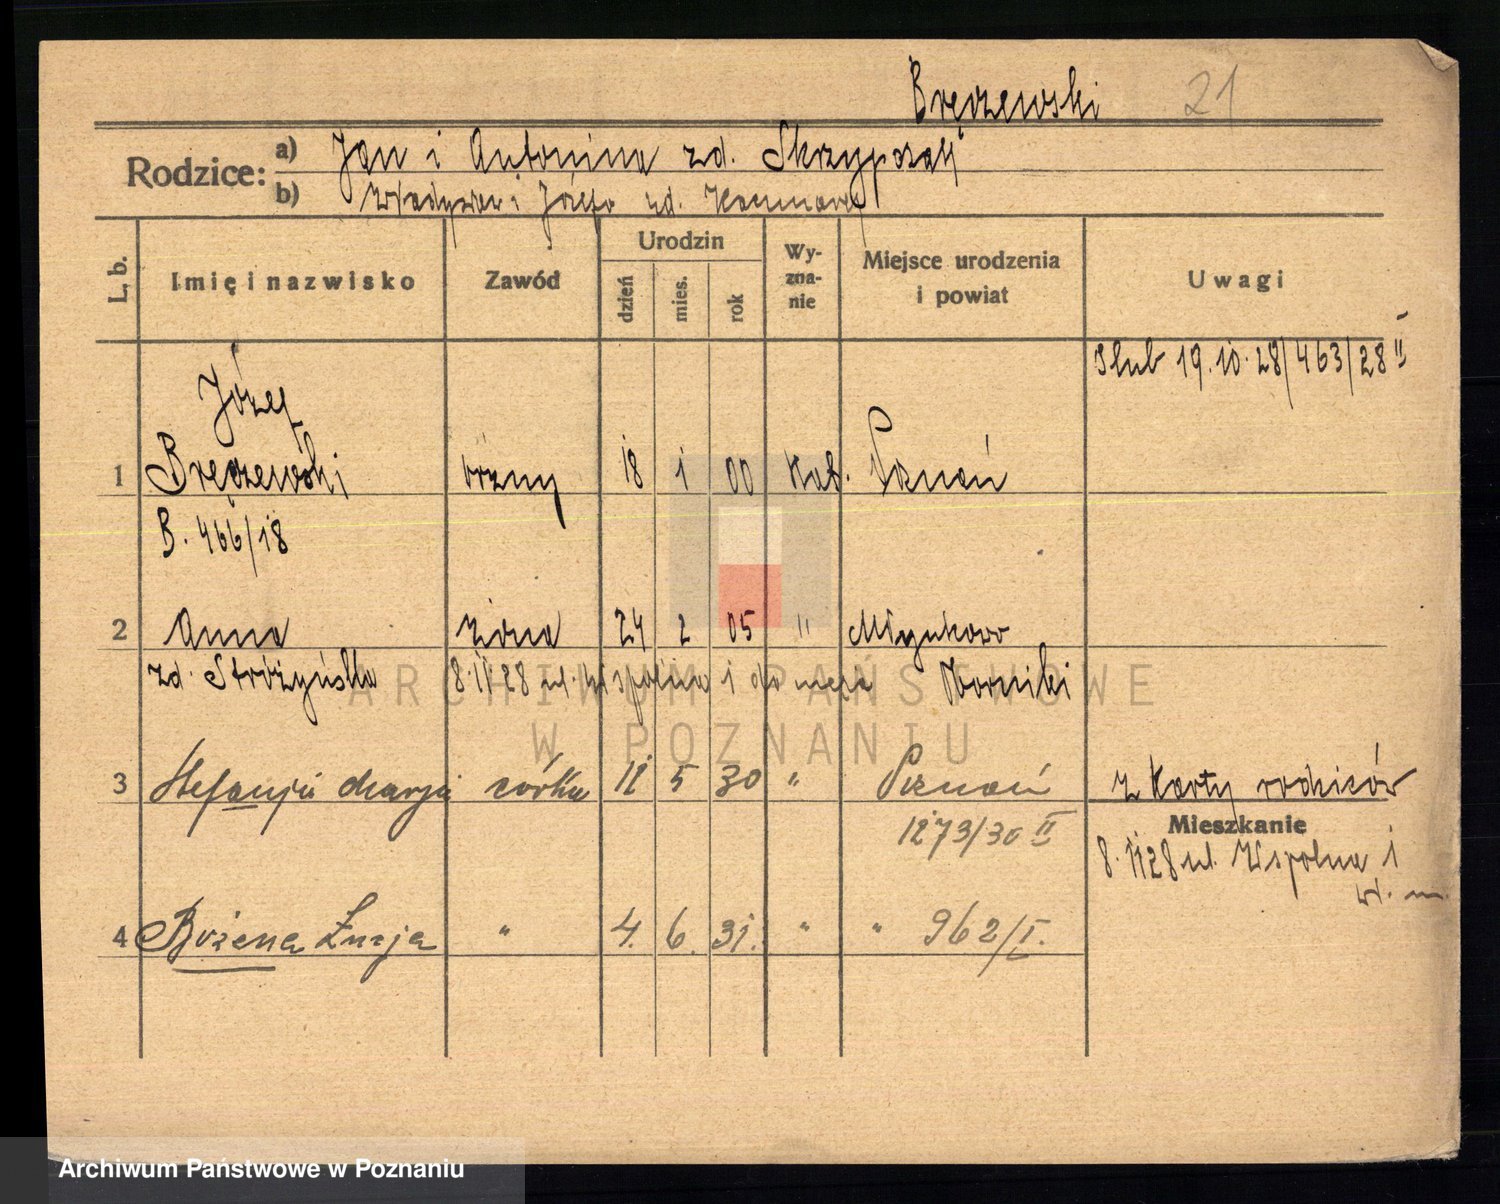 Bręczewski 21
Rodzice: a) Jan i Antonina zd. Skrzypczak
b) Władysław i Józefa zd.
L. b. Imię i nazwisko Zawód Urodzin dzień mies. rok Wyzna-nie Miejsce urodzenia i powiat Uwagi
ślub 19.10.28/463/28 II
Józef
1 Bręczewski 18 1 00 Kat. Poznań
B. 466/18
2 Anna żona 24 2 05 " Młynkowo
zd. Stróżyńska 8.11.28 ul. Wspólna 1 do męża Oborniki
3 Stefanja Marja córka 11 5 30 " Poznań z karty rodziców
1273/30 II
Mieszkanie
8.11.28 ul. Wspólna 1
4 Bożena Łucja " 4. 6. 31. " " 962/I.
ARCHIWUM PAŃSTWOWE
W POZNANIU
Archiwum Państwowe w Poznaniu